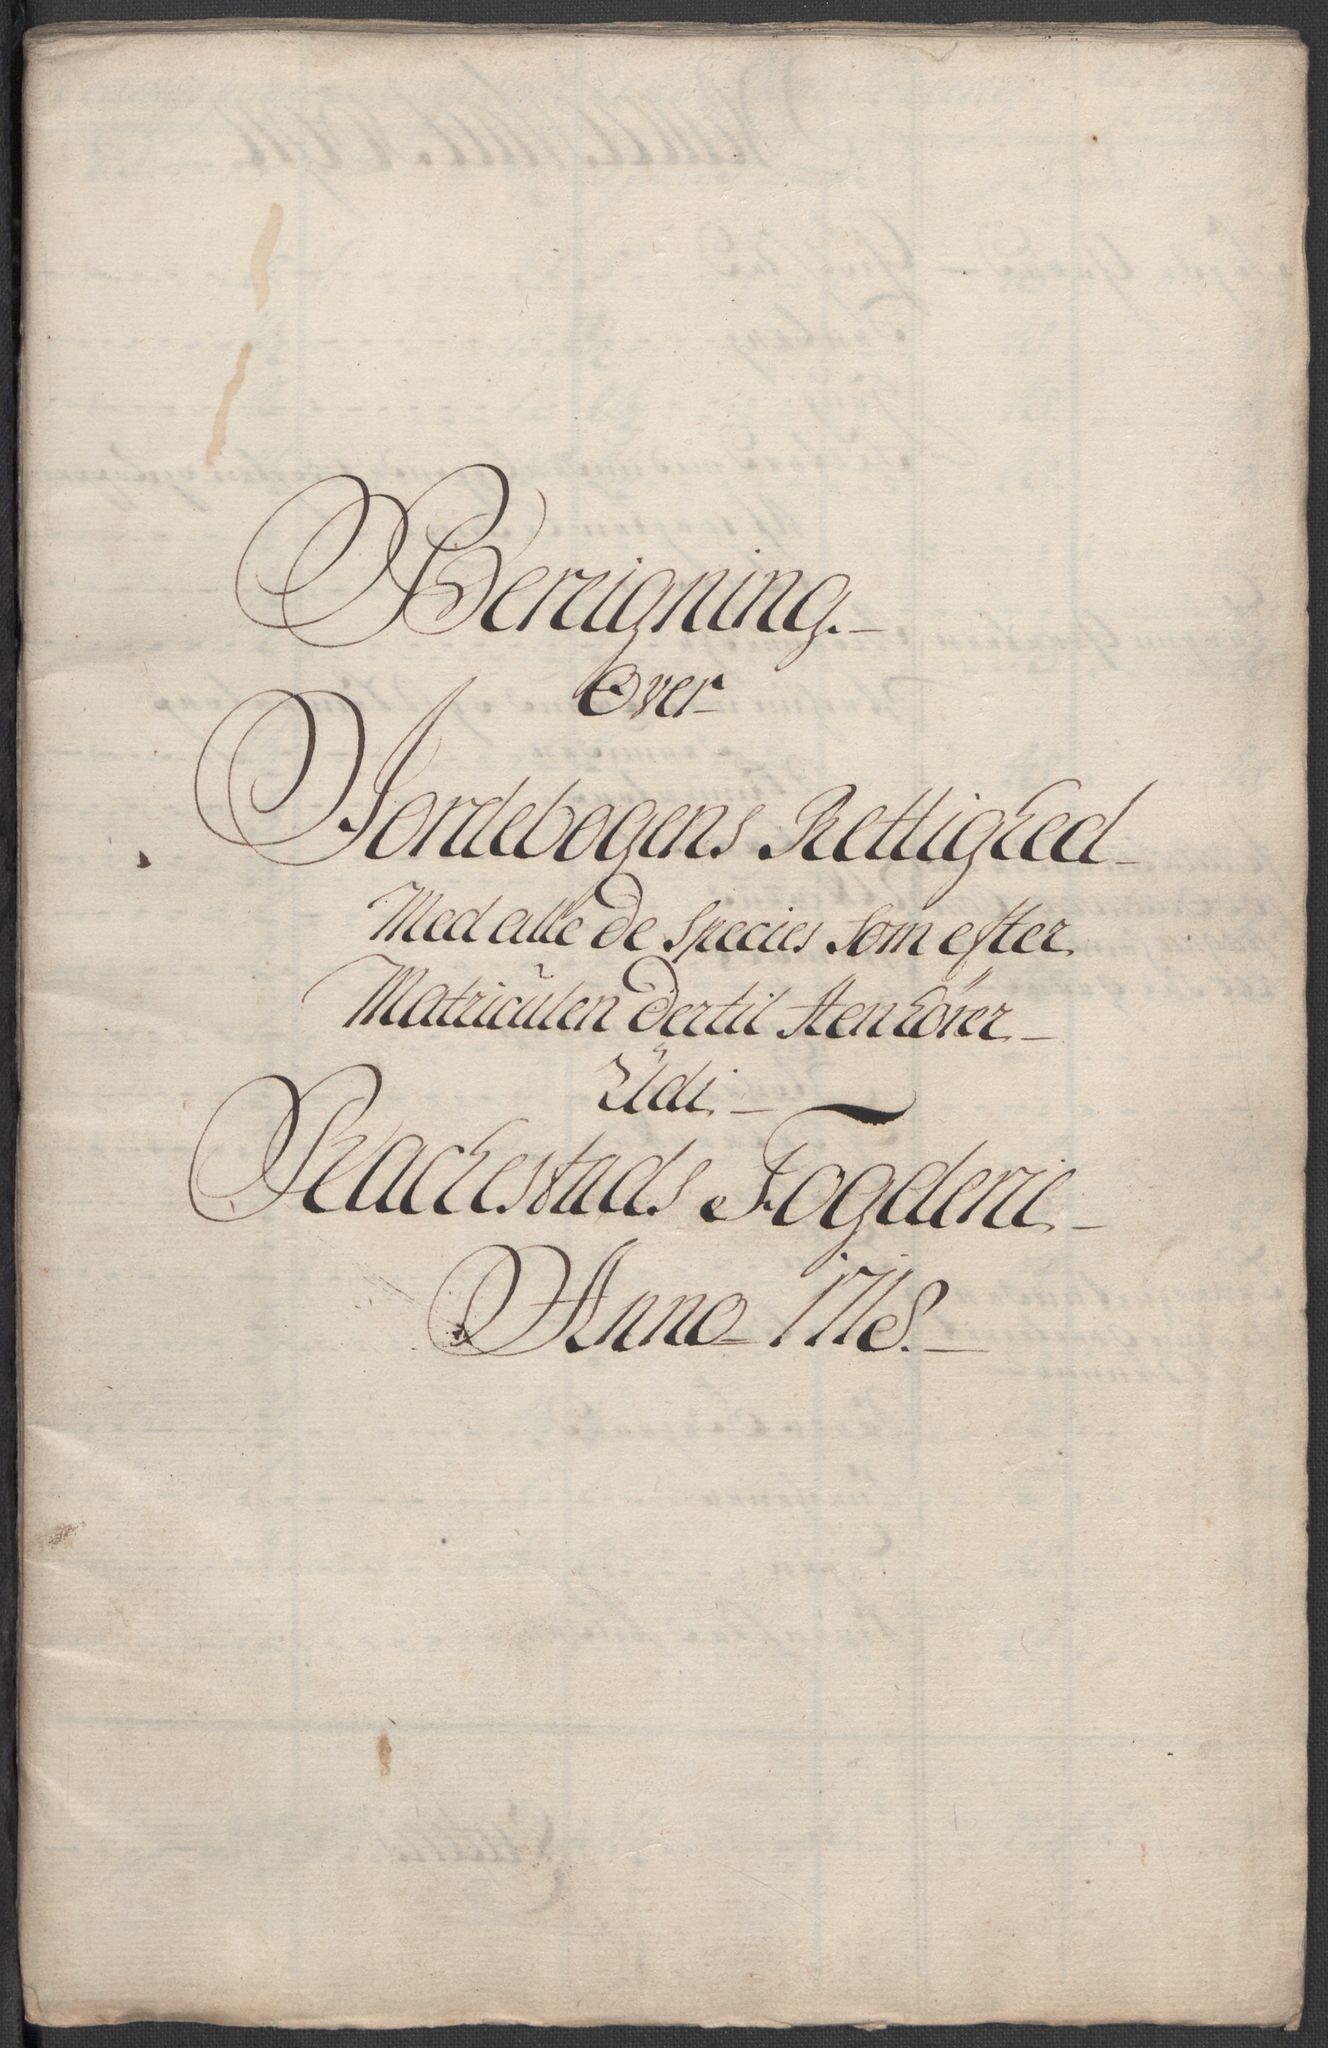 Bereigning.
Over
Jordebogens Rettighed
Med alle de Species Som efter
Matriculen dertil Henhörer
Udi
Rackestads Fogderie
Anno 1718.